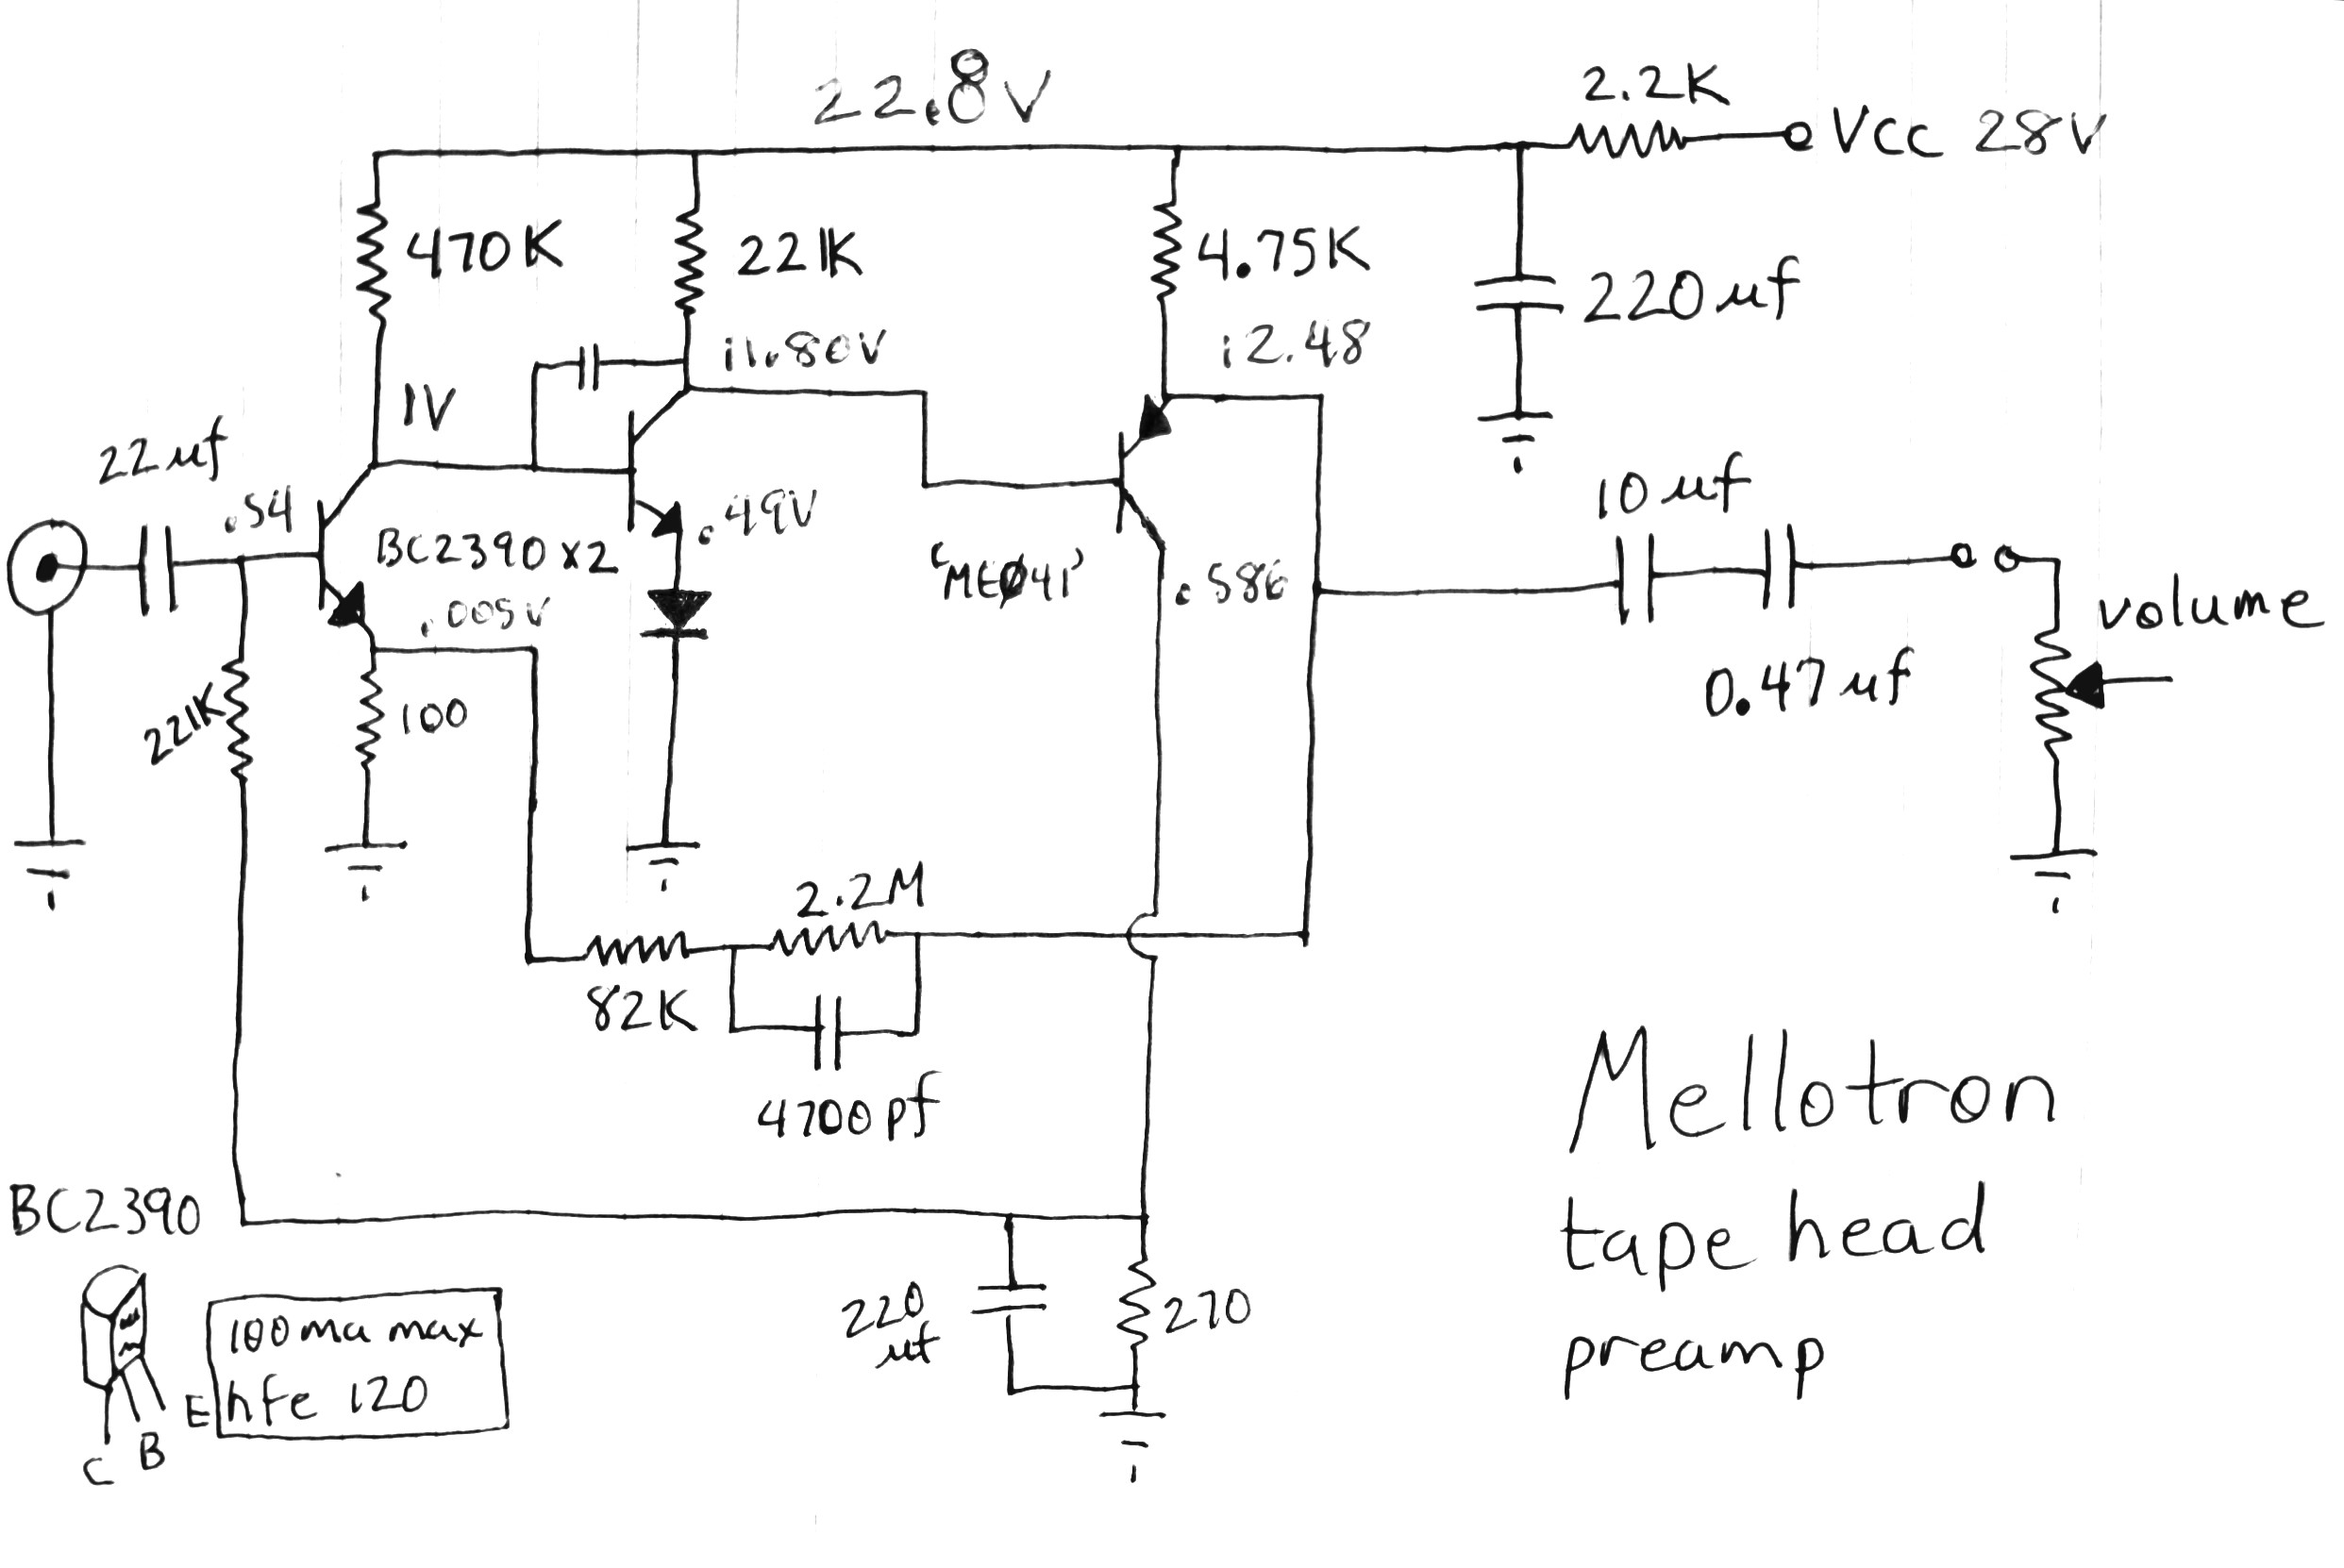 22.8V
2.2K
VCC 28V
470K
221K
4.75K
220uf
11.80V
12.48
1V
22uf
.54
10uf
.49V
BC2390 x2
.005V
'ME041'
.586
volume
0.47uf
221K
100
2.2M
82K
4700pf
Mellotron
tape head
preamp
BC2390
220
uf
270
100ma max
hfe 120
E
B
C